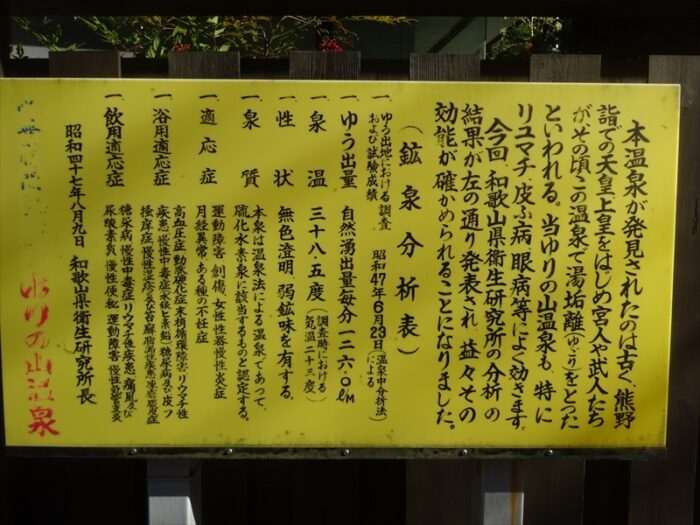 本温泉が発見されたのは古く、熊野
詣での天皇上皇をはじめ宮人や武人たち
がその頃この温泉で湯垢離(ゆごり)をとった
といわれる。当ゆりの山温泉も、特に
リュマチ、皮ふ病、眼病等によく効きます。
今回、和歌山県衛生研究所の分析の
結果が左の通り発表され、益々その
効能が確かめられることになりました。
(鉱泉分析表)
一、ゆう出地における調査および試験成績 昭和47年6月23日(温泉中分析法)による
一、ゆう出量 自然湧出量毎分一二六・〇ℓM
一、泉温 三十八・五度(調査時における気温二十三度)
一、性状 無色澄明、弱鉱味を有する。
一、泉質 本泉は温泉法による温泉であって、
硫化水素泉に該当するものと認定する。
一、適応症 運動障害、創傷、女性性器慢性炎症
月経異常、ある種の不妊症
一、浴用適応症 高血圧症、動脈硬化症、末梢循環障害、リウマチ性
疾患、慢性中毒症(水銀、ヒ素、鉛)、糖尿病及び皮フ
一、飲用適応症 糖尿病、慢性中毒症、リウマチ性疾患、痛風及び
尿酸素質、慢性便秘、運動障害
昭和四十七年八月九日 和歌山県衛生研究所長
ゆりの山温泉